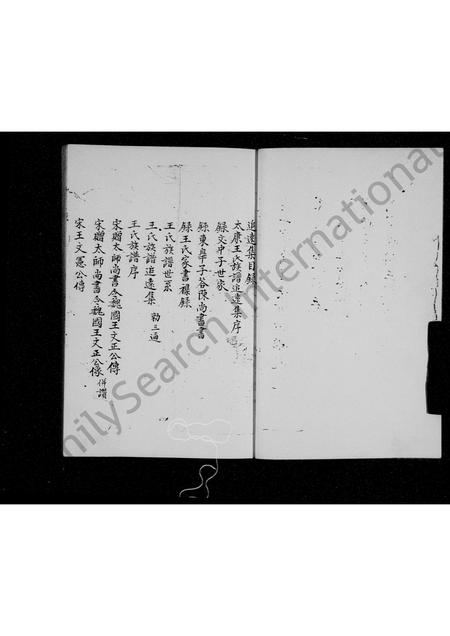 追遠集目錄
太康王氏族譜追遠集序
錄文中子世家
錄東皋子答陳尚書書
錄王氏家書襍錄
王氏族譜世系
王氏族譜追遠集 勅三通
王氏族譜序
宋贈太師尚書令魏國王文正公傳
宋贈太師尚書令魏國王文正公像 併讚
宋王文憲公傳
FamilySearch International